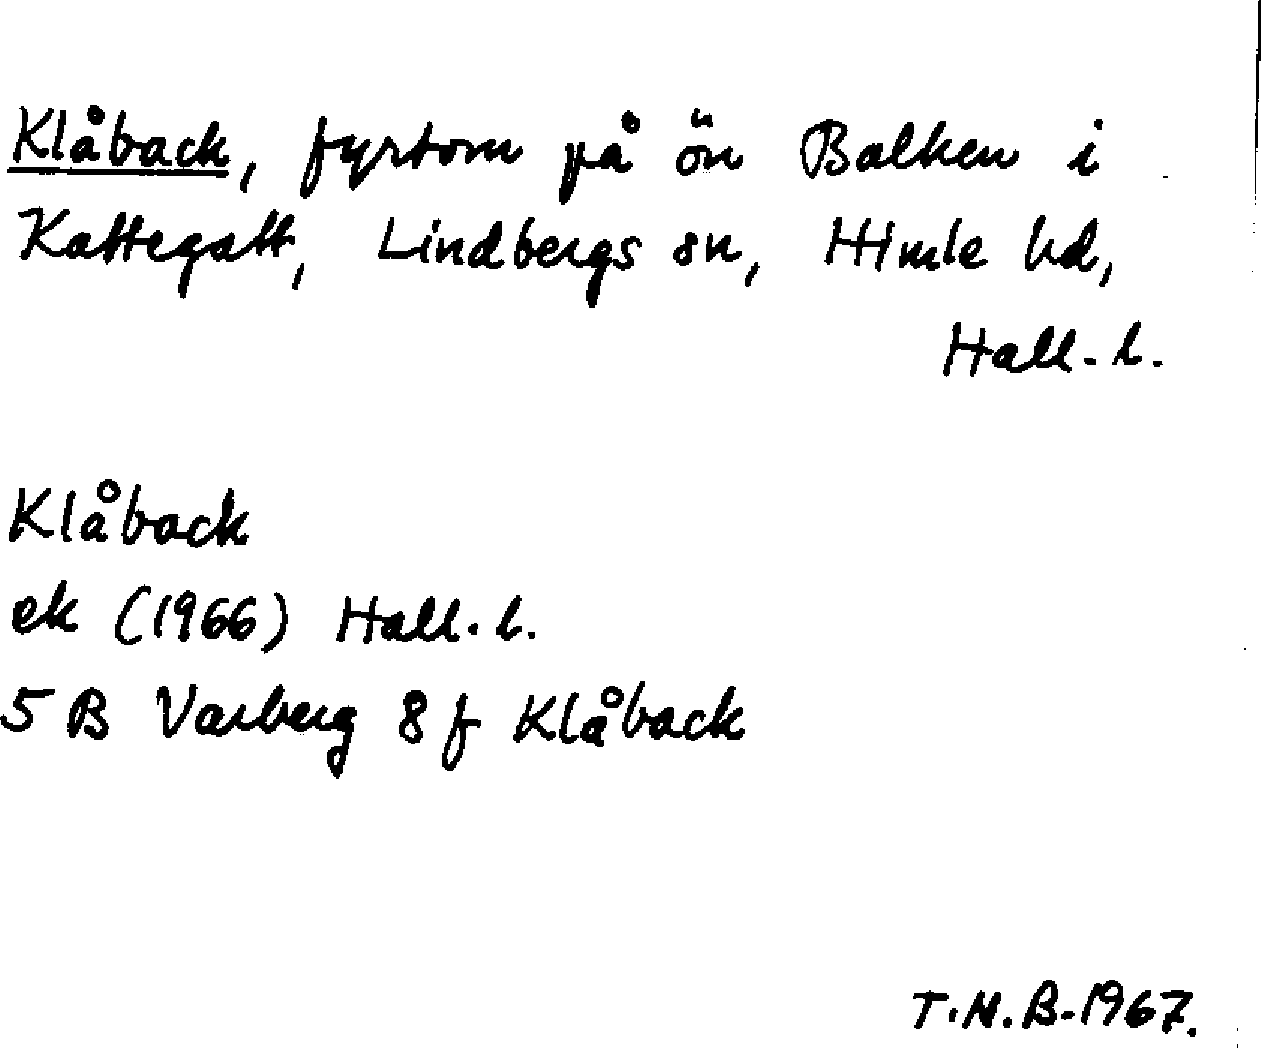 Klåback, fyrtorn på ön Balken i
Kattegatt, Lindbergs sn, Himle hd,
Hall. l.
Klåback
ek (1966) Hall. l.
5 B Varberg 8 f Klåback
T.N.B. 1967.